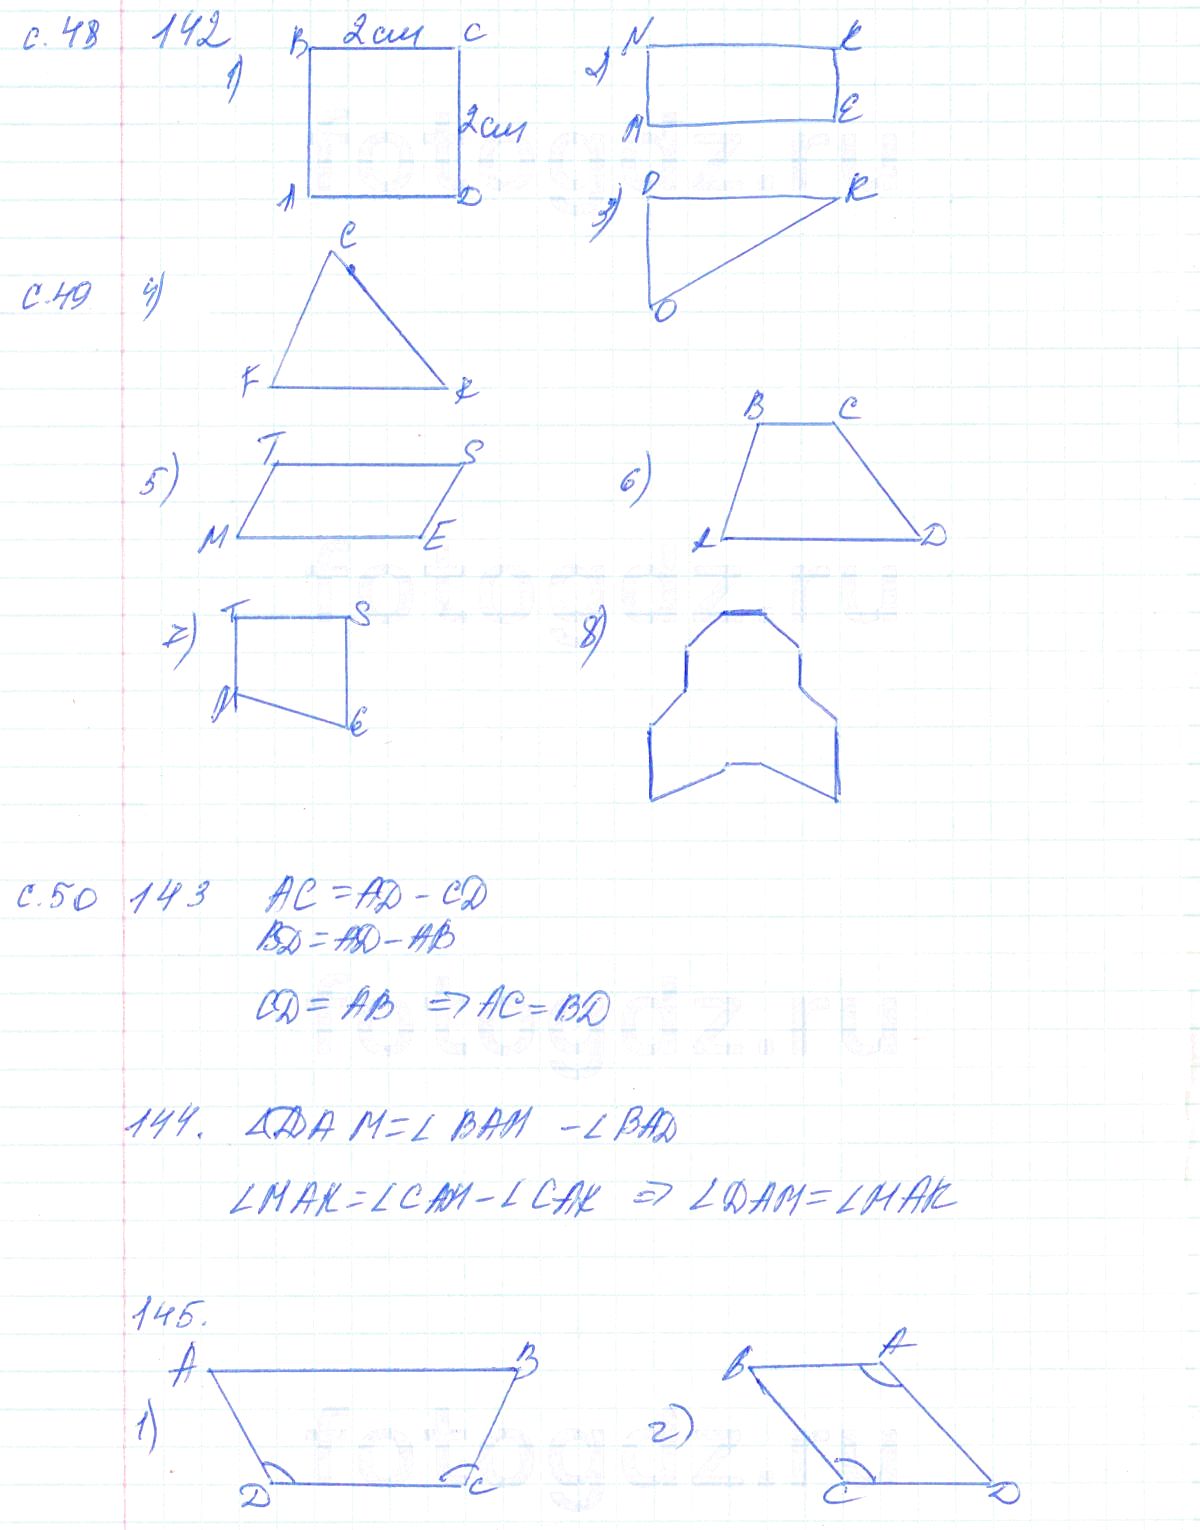 с. 48 142
1) B 2см C
2см
A D
2) N K
M E
3) P K
O
с. 49 4) C
F K
5) T S
M E
6) B C
A D
7) T S
M E
8)
с. 50 143 AC = AD - CD
BD = AD - AB
CD = AB => AC = BD
144. ∠DAM = ∠BAM - ∠BAD
∠MAK = ∠CAM - ∠CAK => ∠DAM = ∠MAK
145.
1) A B
D C
2) B A
C D
fotogdz.ru
fotogdz.ru
fotogdz.ru
fotogdz.ru